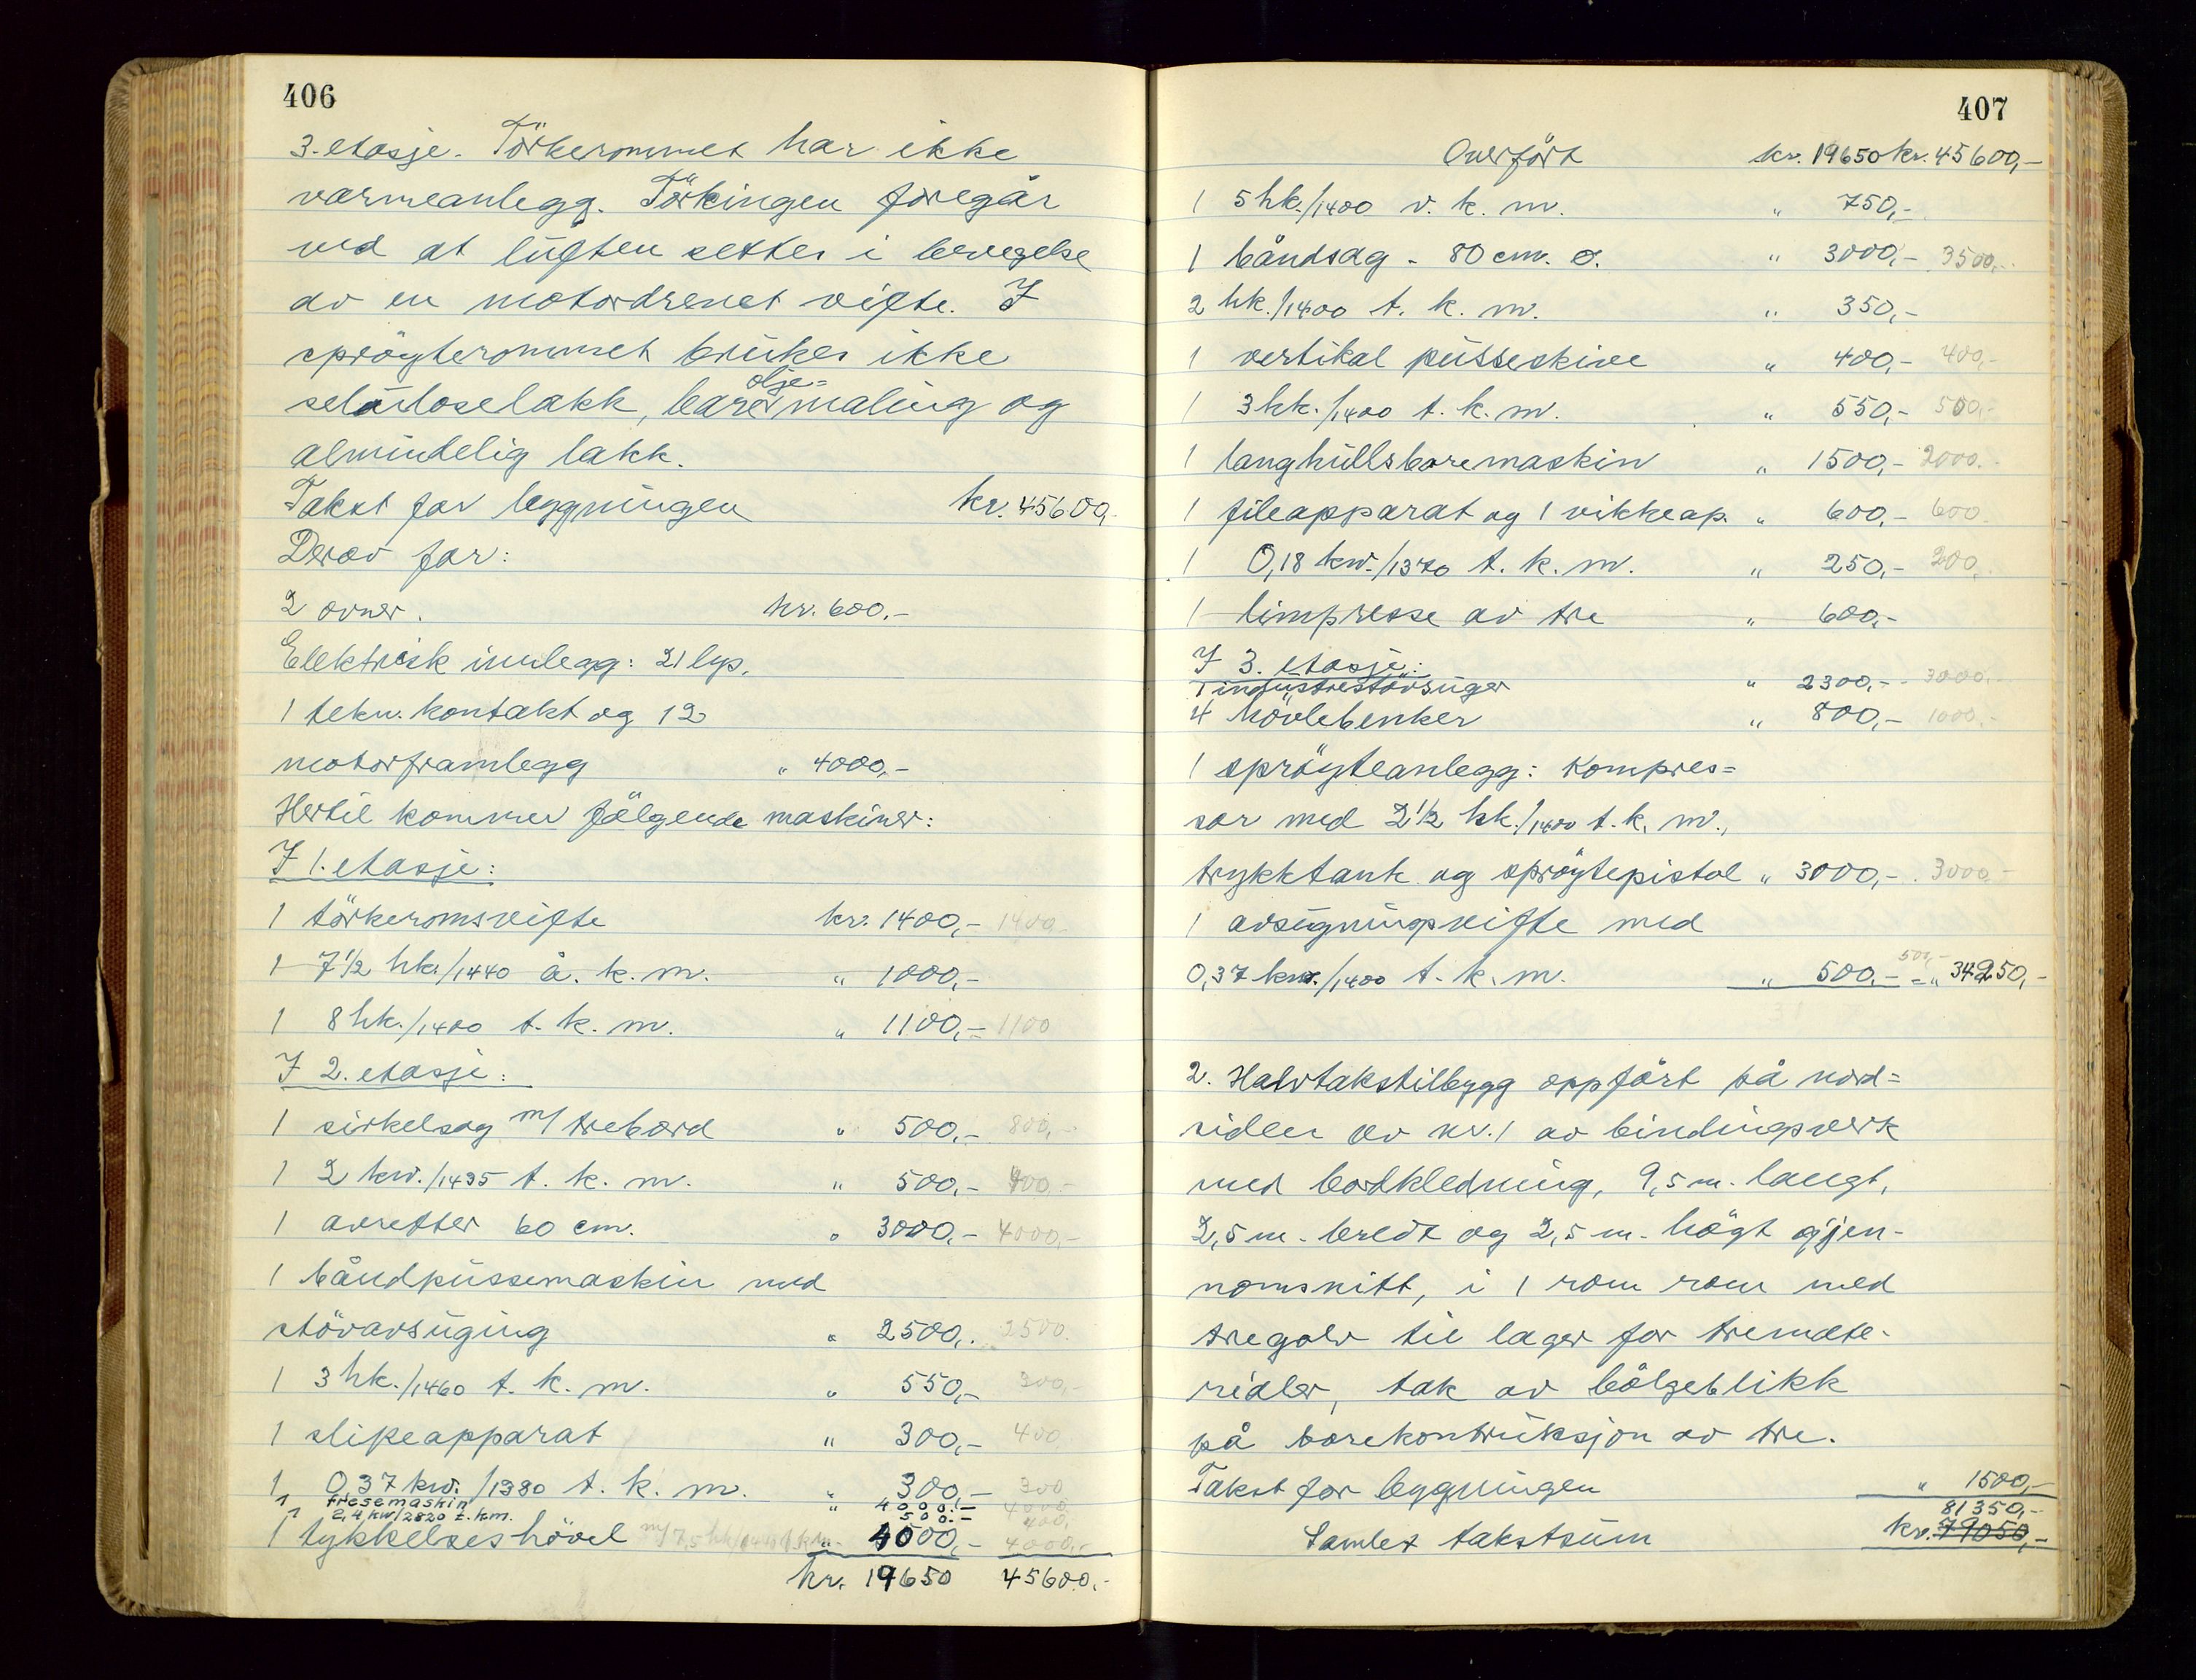 406
3. etasje. Törkerommet har ikke
varmeanlegg. Törkingen foregår
ved at luften settes i bevegelse
av en motordrevet vifte. I
spröyterommet brukes ikke
olje=
seluloselakk, bare maling og
almindelig lakk.
Takst for bygningen kr. 45600,-
Derav for:
2 ovner. kr. 600.-
Elektrisk innlegg: 21 lyp.
1 tekn. kontakt og 12
motorframlegg " 4000,-
Hertil kommer fölgende maskiner:
I 1. etasje:
1 törkeromsvifte kr. 1400,- 1400,-
1 7½ hk./1440 å. k. m. " 1000,-
1 8 hk./1400 t. k. m. " 1100,- 1100
I 2. etasje:
1 sirkelsag m/ trebord " 500,- 800,-
1 2 kw./1435 t. k. m. " 500,- 400,-
1 avretter 60 cm. " 3000,- 4000,-
1 båndpussemaskin med
stövavsuging " 2500,- 2500.
1 3 hk./1460 t. k. m. " 550,- 300,-
1 slipeapparat " 300,- 400
1 0,37 kw./1380 t. k. m. " 300,- 300
1 fresemaskin " 4000.- 4000,
1 2,4 kw/2820 t.k.m. 500.- 400,
1 tykkelseshövel m/7,5 hk/1440 t.k.m. " 4000,- 4000,-
kr. 19650 45600,-
407
Overfört kr. 19650 kr. 45600,-
1 5 hk./1400 v. k. m. " 750,-
1 båndsag - 80 cm. ø. " 3000,- 3500,-
2 hk./1400 t. k. m. " 350,-
1 vertikal pusseskive " 400,- 400,-
1 3 hk./1400 t. k. m. " 550,- 500,-
1 langhullsboremaskin " 1500,- 2000.-
1 fileapparat og 1 vikkeap. " 600,- 600
1 0,18 kw./1370 t. k. m. " 250,- 200,
1 limpresse av tre " 600,-
I 3. etasje:
1 industristövsuger " 2300,- 3000,-
4 hövlebenker " 800,- 1000,-
1 spröyteanlegg: Kompres=
sor med 2½ hk./1400 t. k. m.,
trykktank og spröytepistol " 3000,- 3000,-
1 avsugningsvifte med
500,-
0,37 kw./1400 t. k. m. " 500,- = " 34250,-
2. Halvtakstilbygg oppfört på nord=
siden av nr. 1 av bindingsverk
med bordkledning, 9,5 m. langt,
2,5 m. bredt og 2,5 m. högt gjen-
nomsnitt, i 1 rom rom med
tregolv til lager for tremate-
rialer, tak av bölgeblikk
på bærekontruksjon av tre.
Takst for bygningen " 1500,-
81350,-
Samlet takstsum kr. 79050,-